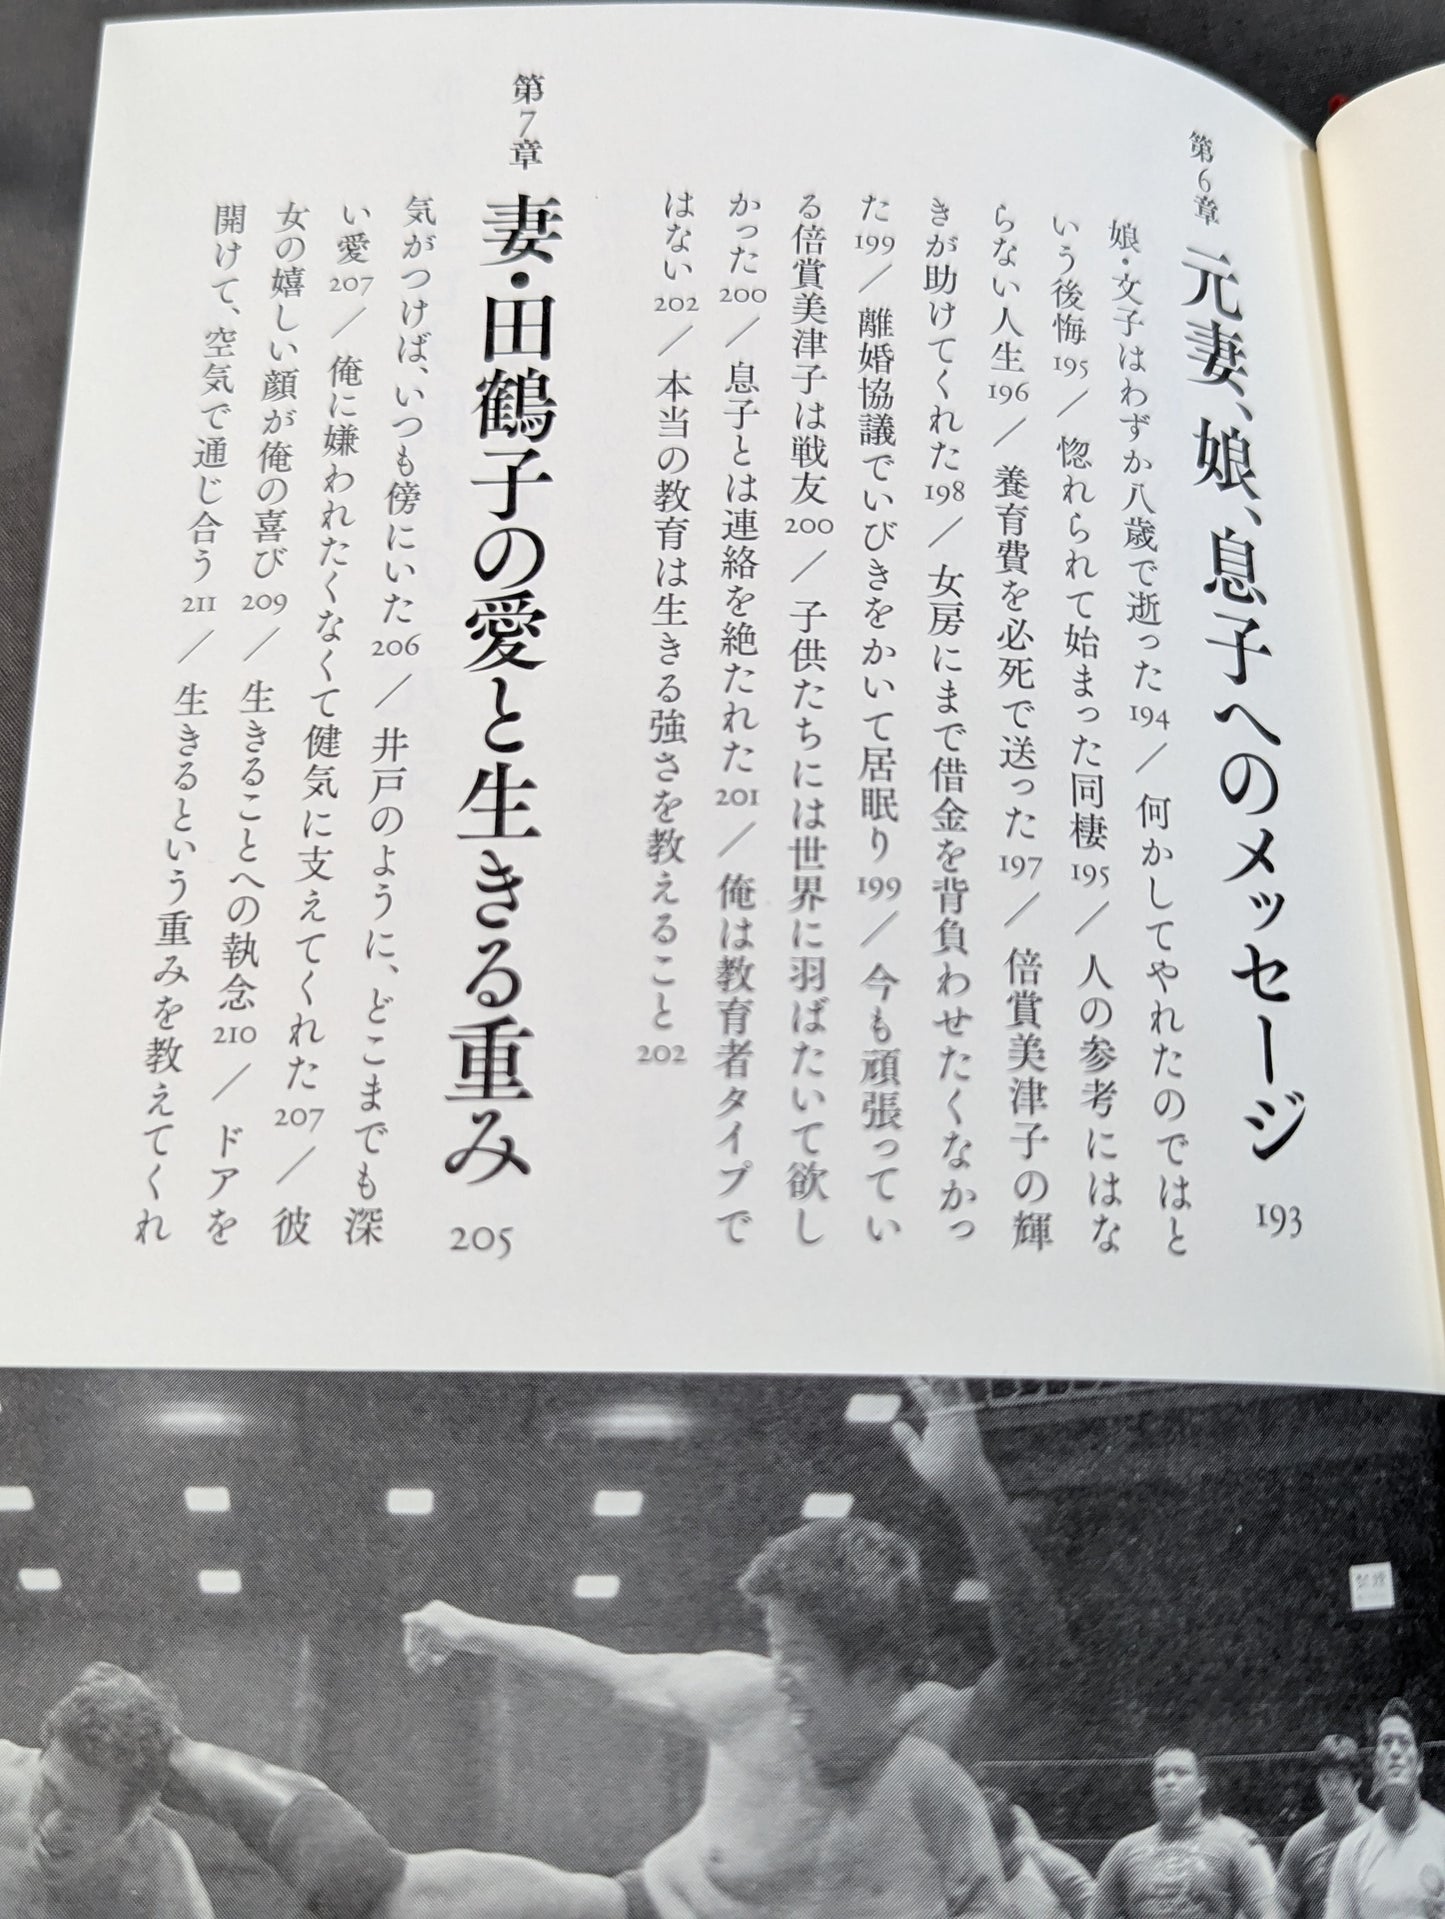 第6章 元妻、娘、息子へのメッセージ 193
娘・文子はわずか八歳で逝った 194 ／ 何かしてやれたのではと
いう後悔 195 ／ 惚れられて始まった同棲 195 ／ 人の参考にはな
らない人生 196 ／ 養育費を必死で送った 197 ／ 倍賞美津子の輝
きが助けてくれた 198 ／ 女房にまで借金を背負わせたくなかっ
た 199 ／ 離婚協議でいびきをかいて居眠り 199 ／ 今も頑張ってい
る倍賞美津子は戦友 200 ／ 子供たちには世界に羽ばたいて欲し
かった 200 ／ 息子とは連絡を絶たれた 201 ／ 俺は教育者タイプで
はない 202 ／ 本当の教育は生きる強さを教えること 202
第7章 妻・田鶴子の愛と生きる重み 205
気がつけば、いつも傍にいた 206 ／ 井戸のように、どこまでも深
い愛 207 ／ 俺に嫌われたくなくて健気に支えてくれた 207 ／ 彼
女の嬉しい顔が俺の喜び 209 ／ 生きることへの執念 210 ／ ドアを
開けて、空気で通じ合う 211 ／ 生きるという重みを教えてくれ